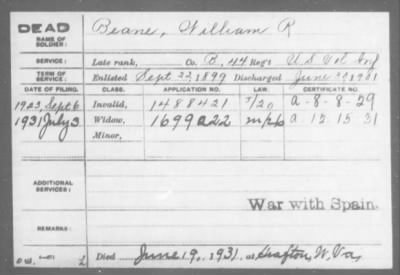 DEAD
NAME OF SOLDIER: Beane, William R
SERVICE: Late rank, Co. B, 44 Reg't U S Vol Inf
TERM OF SERVICE: Enlisted Sept 22, 1899 Discharged June 30, 1901
DATE OF FILING. CLASS. APPLICATION NO. LAW. CERTIFICATE NO.
1923, Sept 6 Invalid, 1488421 a-8-8-29
1931 July 3 Widow, 1699022 a 12 15 31
Minor,
ADDITIONAL SERVICES:
War with Spain.
REMARKS:
Died June 19, 1931, at Grafton, W. Va.